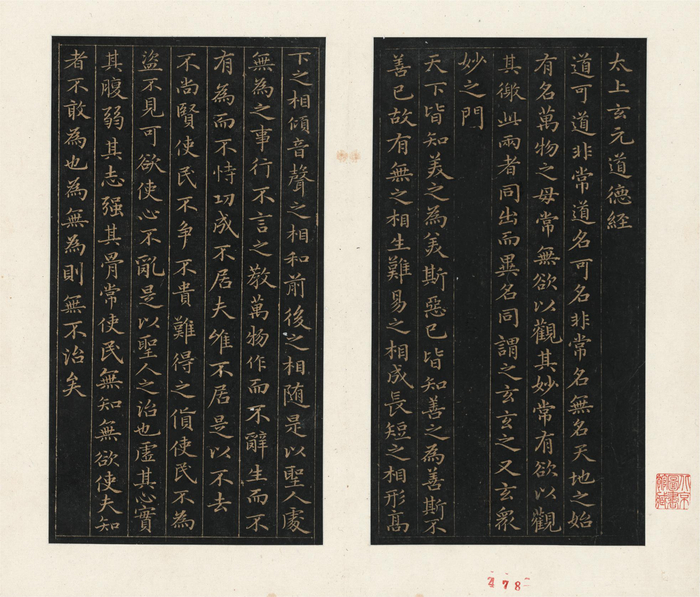 太上玄元道德經
道可道非常道名可名非常名無名天地之始
有名萬物之母常無欲以觀其妙常有欲以觀
其徼此兩者同出而異名同謂之玄玄之又玄衆
妙之門
天下皆知美之為美斯惡已皆知善之為善斯不
善已故有無之相生難易之相成長短之相形高
下之相傾音聲之相和前後之相随是以聖人處
無為之事行不言之教萬物作而不辭生而不
有為而不恃功成不居夫惟不居是以不去
不尚賢使民不争不貴難得之貨使民不為
盜不見可欲使心不亂是以聖人之治也虛其心實
其腹弱其志强其骨常使民無知無欲使夫知
者不敢為也為無為則無不治矣
478